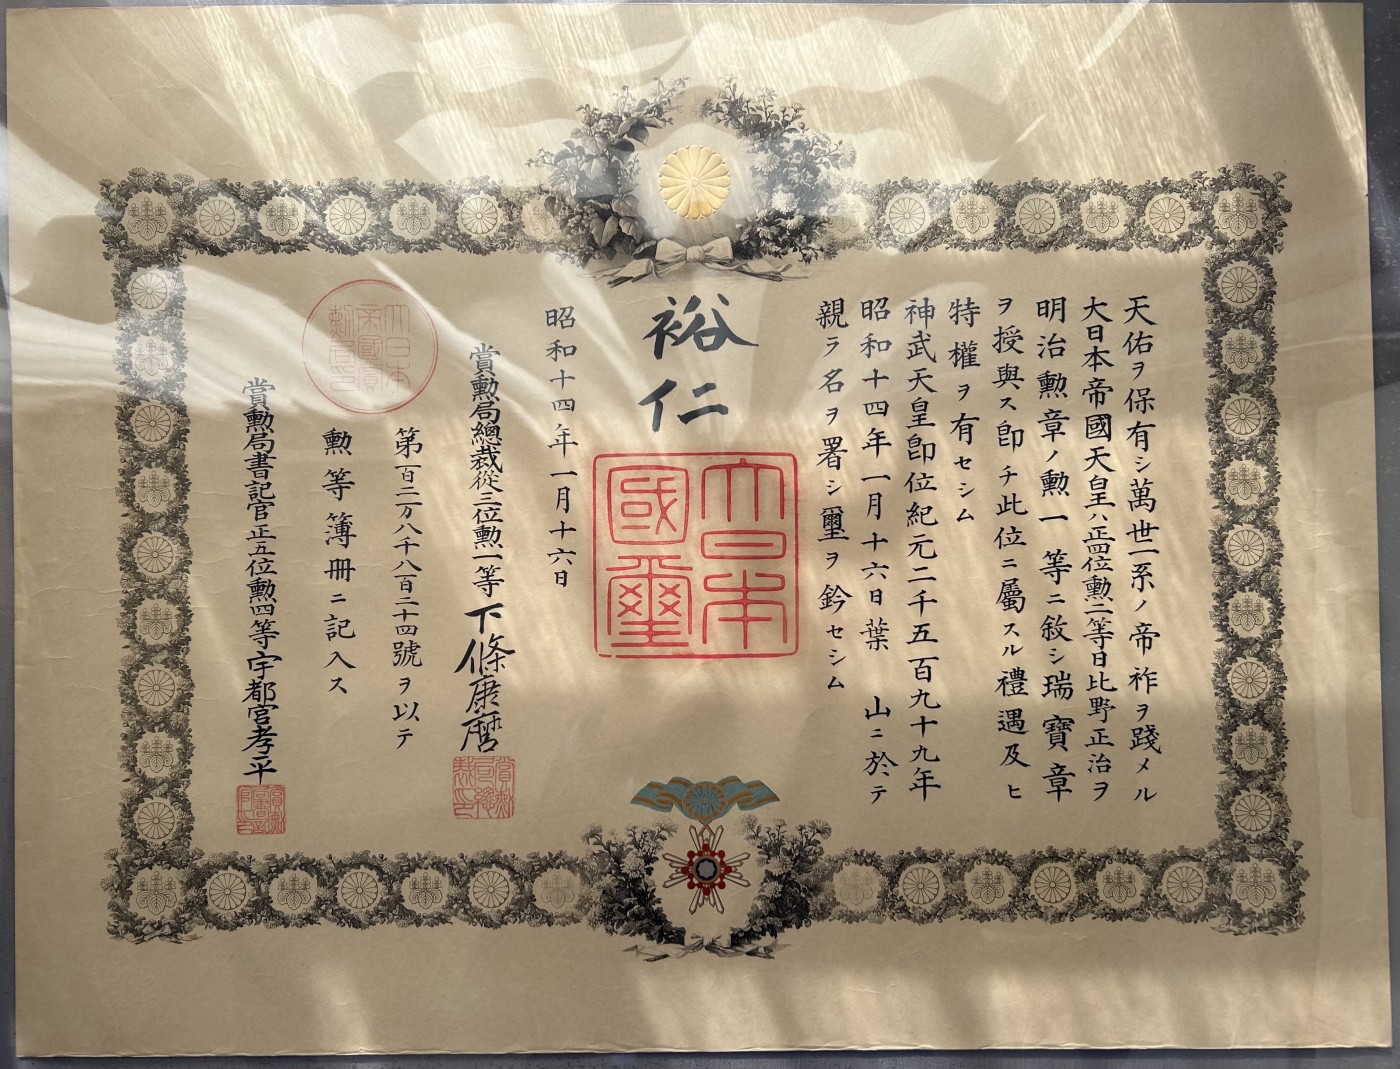 天佑ヲ保有シ萬世一系ノ帝祚ヲ踐メル
大日本帝國天皇ハ正四位勲二等日比野正治ヲ
明治勲章ノ勲一等ニ敘シ瑞寶章
ヲ授與ス即チ此位ニ屬スル禮遇及ヒ
特權ヲ有セシム
神武天皇即位紀元二千五百九十九年
昭和十四年一月十六日葉山ニ於テ
親ラ名ヲ署シ璽ヲ鈐セシム
裕仁
大日本國璽
昭和十四年一月十六日
賞勲局總裁從三位勲一等下條康麿
賞勲局總裁之印
第一百二万八千八百二十四號ヲ以テ
勲等簿冊ニ記入ス
大日本帝國賞勲局之印
賞勲局書記官正五位勲四等宇都宮孝平